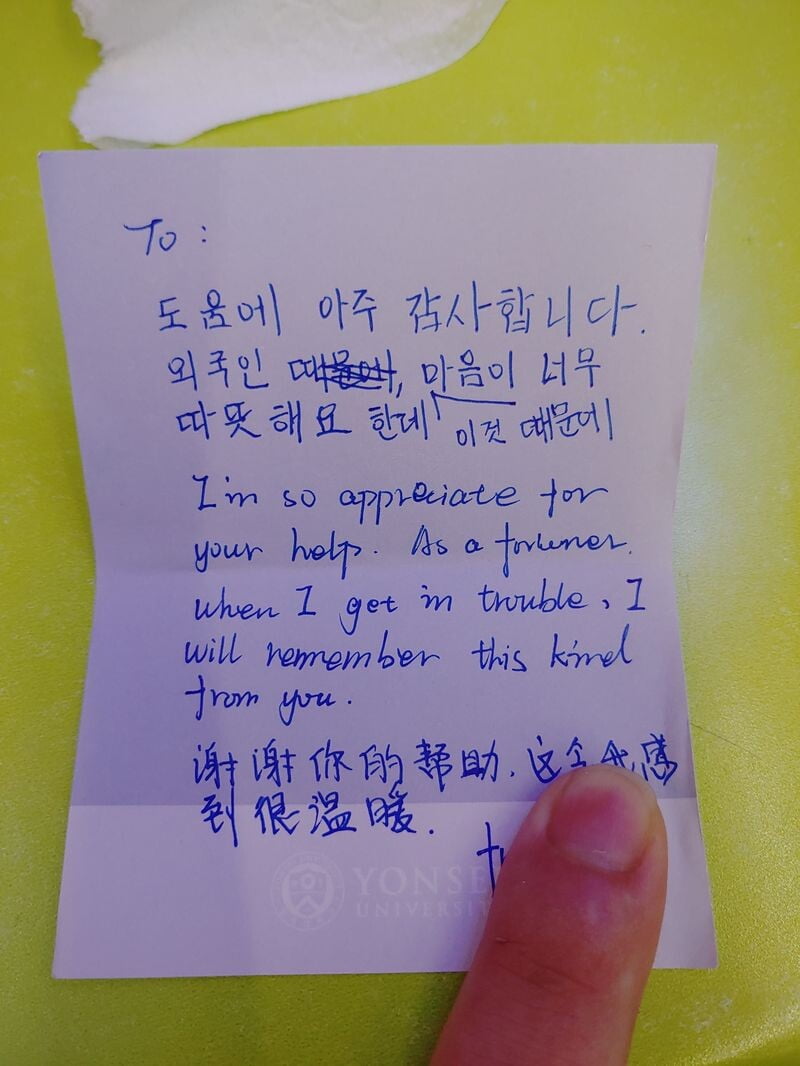 To :
도움에 아주 감사합니다.
외국인 때문에, 마음이 너무
따뜻해요 한데 이것 때문에
I'm so appreciate for
your help. As a foriuner.
when I get in trouble, I
will remember this kind
from you.
谢谢你的帮助. 这令我感
到很温暖.
YONSE
UNIVERSIT